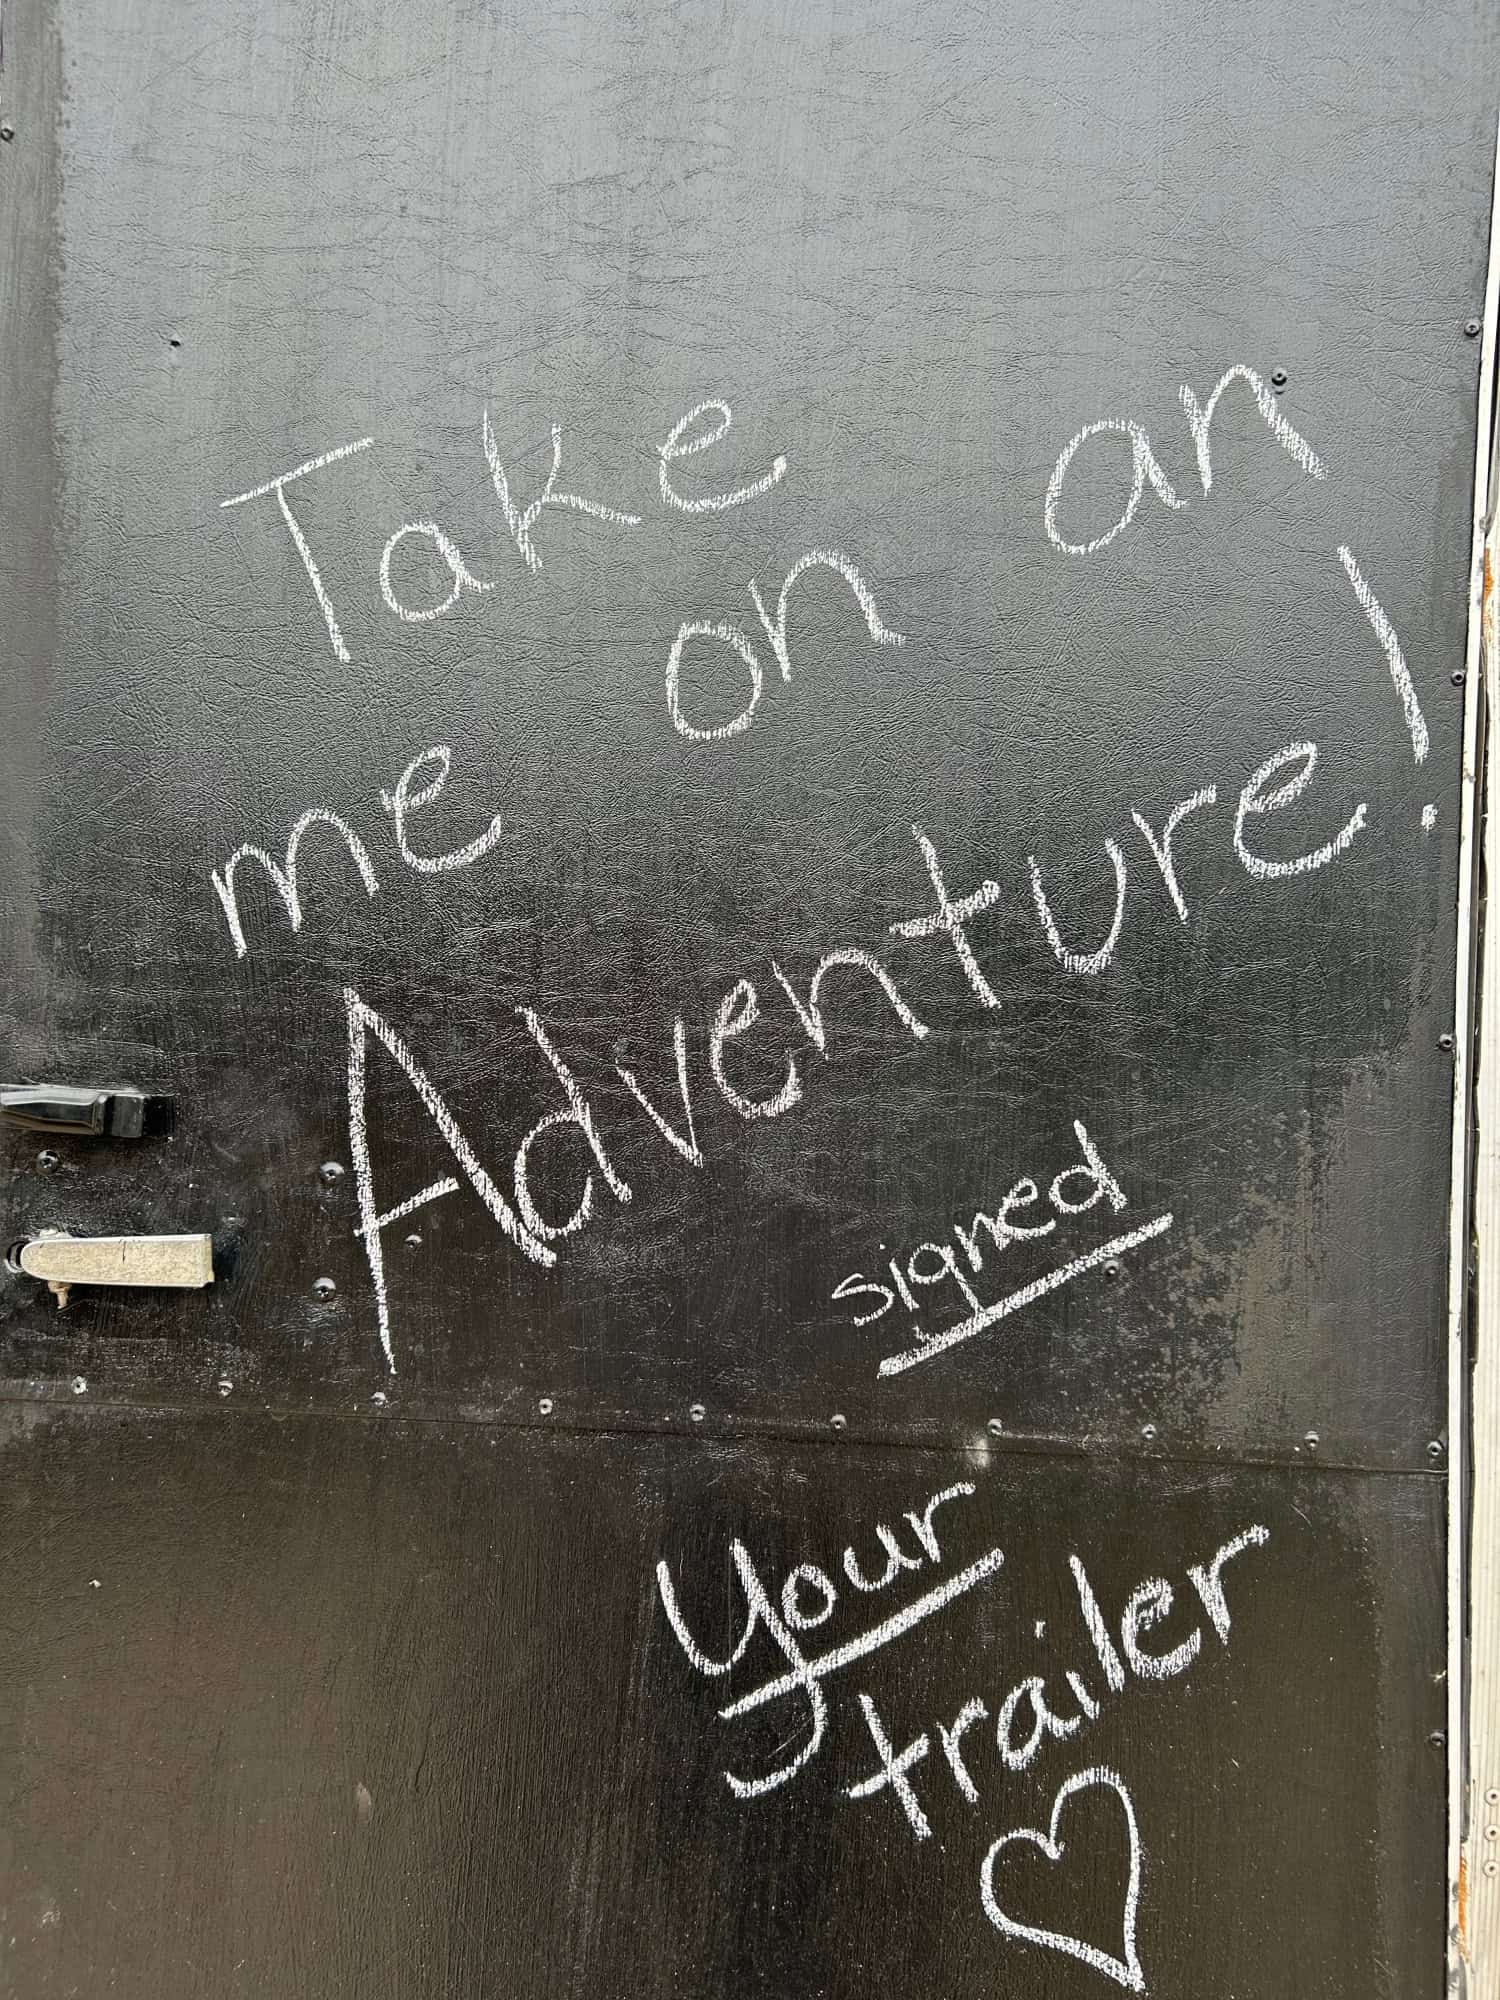 Take me on an
Adventure!
signed
Your
trailer